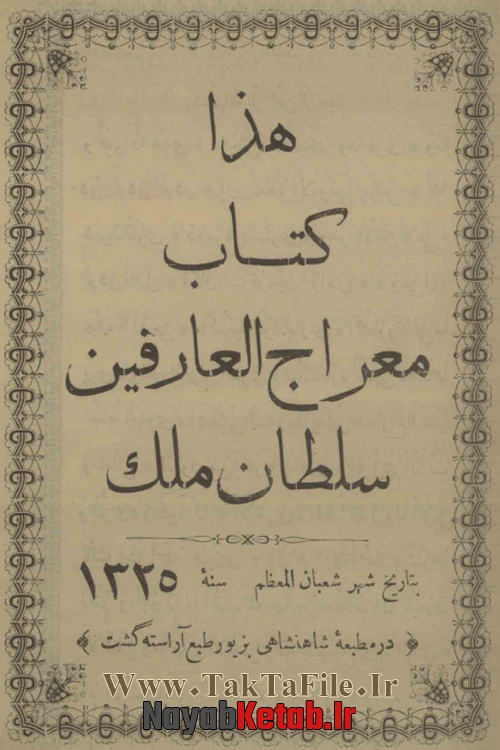 هذا
كتاب
معراج العارفين
سلطان ملك
بتاریخ شهر شعبان المعظم سنهٔ ۱۳۲۵
﴿ در مطبعهٔ شاهنشاهی بزیور طبع آراسته گشت ﴾
Www.TakTaFile.Ir
NayabKetab.Ir